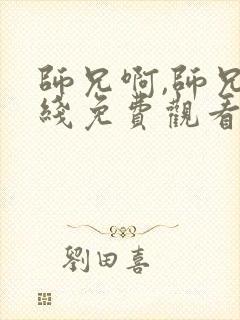 師兄啊,師兄
綫免費觀看
劉田喜